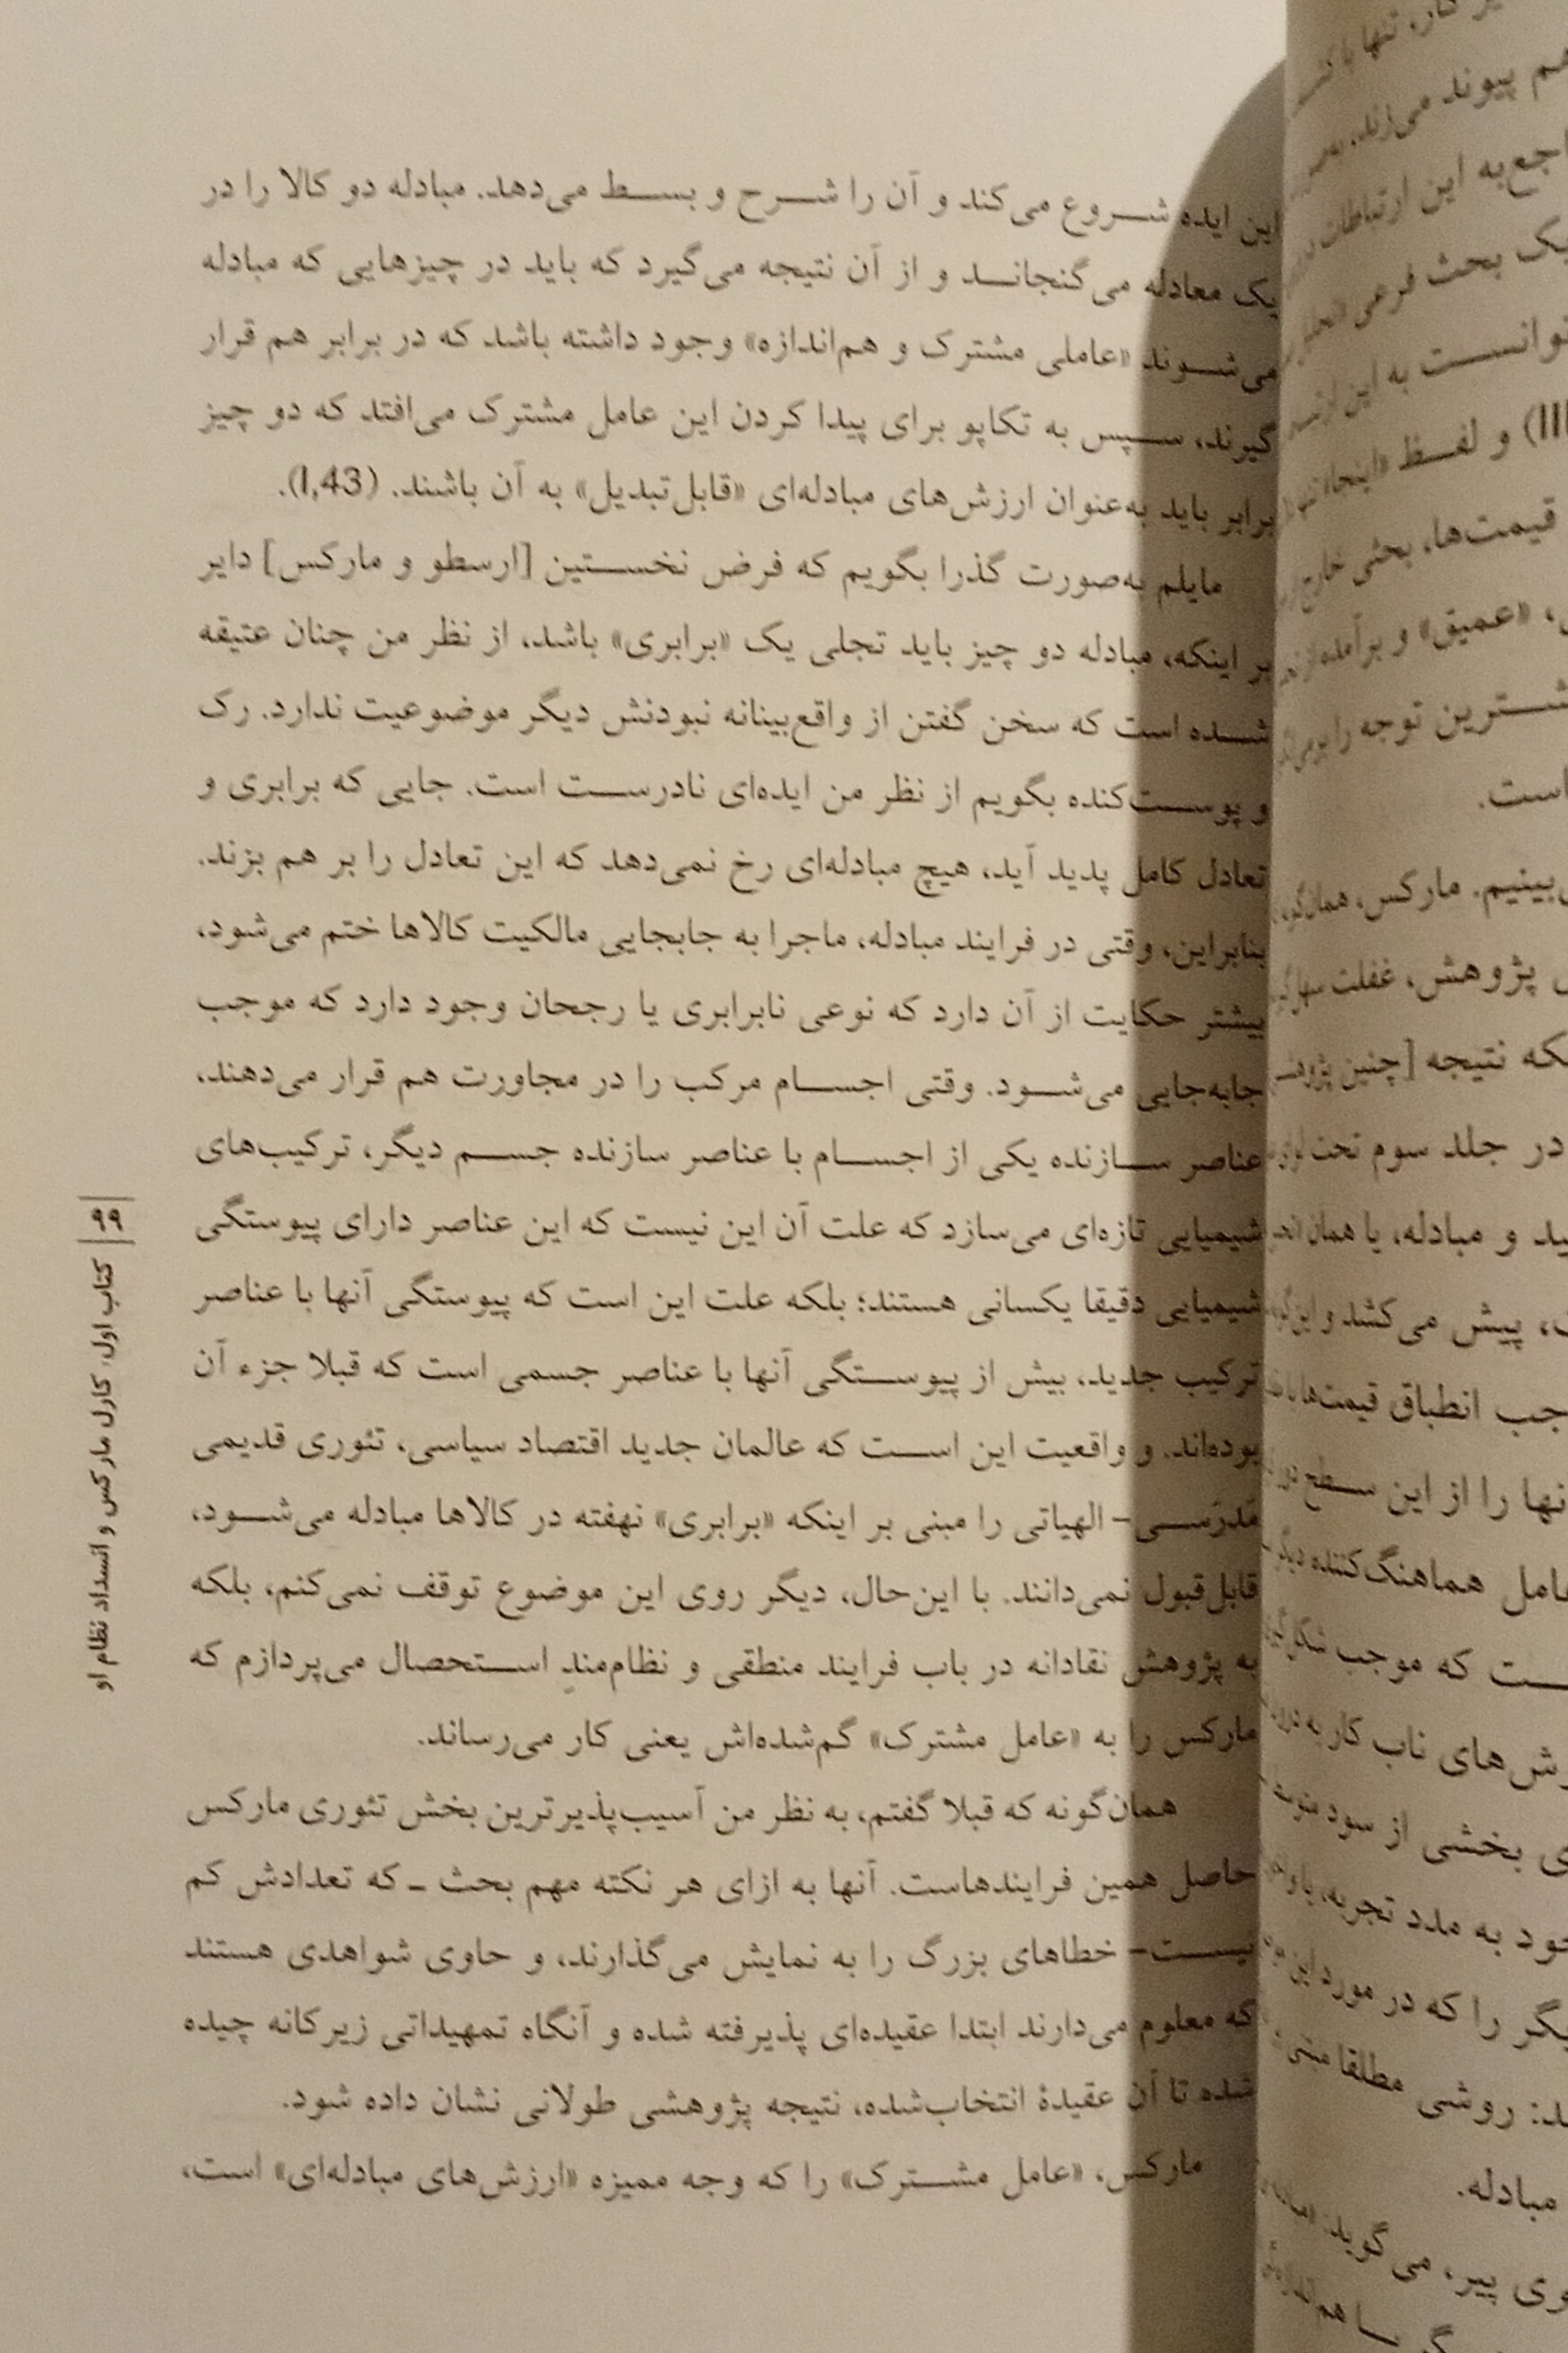 این ایده شروع می‌کند و آن را شرح و بسط می‌دهد. مبادله دو کالا را در
یک معادله می‌گنجاند و از آن نتیجه می‌گیرد که باید در چیزهایی که مبادله
می‌شوند «عاملی مشترک و هم‌اندازه» وجود داشته باشد که در برابر هم قرار
گیرند، سپس به تکاپو برای پیدا کردن این عامل مشترک می‌افتد که دو چیز
برابر باید به‌عنوان ارزش‌های مبادله‌ای «قابل‌تبدیل» به آن باشند. (I,43).
مایلم به‌صورت گذرا بگویم که فرض نخستین [ارسطو و مارکس] دایر
بر اینکه، مبادله دو چیز باید تجلی یک «برابری» باشد، از نظر من چنان عتیقه
شده است که سخن گفتن از واقع‌بینانه نبودنش دیگر موضوعیت ندارد. رک
و پوست‌کنده بگویم از نظر من ایده‌ای نادرست است. جایی که برابری و
تعادل کامل پدید آید، هیچ مبادله‌ای رخ نمی‌دهد که این تعادل را بر هم بزند.
بنابراین، وقتی در فرایند مبادله، ماجرا به جابجایی مالکیت کالاها ختم می‌شود،
بیشتر حکایت از آن دارد که نوعی نابرابری یا رجحان وجود دارد که موجب
جابه‌جایی می‌شود. وقتی اجسام مرکب را در مجاورت هم قرار می‌دهند،
عناصر سازنده یکی از اجسام با عناصر سازنده جسم دیگر، ترکیب‌های
شیمیایی تازه‌ای می‌سازد که علت آن این نیست که این عناصر دارای پیوستگی
شیمیایی دقیقا یکسانی هستند؛ بلکه علت این است که پیوستگی آنها با عناصر
ترکیب جدید، بیش از پیوستگی آنها با عناصر جسمی است که قبلا جزء آن
بوده‌اند. و واقعیت این است که عالمان جدید اقتصاد سیاسی، تئوری قدیمی
مَدرَسی- الهیاتی را مبنی بر اینکه «برابری» نهفته در کالاها مبادله می‌شود،
قابل‌قبول نمی‌دانند. با این‌حال، دیگر روی این موضوع توقف نمی‌کنم، بلکه
به پژوهش نقادانه در باب فرایند منطقی و نظام‌مندِ استحصال می‌پردازم که
مارکس را به «عامل مشترک» گم‌شده‌اش یعنی کار می‌رساند.
همان‌گونه که قبلا گفتم، به نظر من آسیب‌پذیرترین بخش تئوری مارکس
حاصل همین فرایندهاست. آنها به ازای هر نکته مهم بحث ـ که تعدادش کم
نیست- خطاهای بزرگ را به نمایش می‌گذارند، و حاوی شواهدی هستند
که معلوم می‌دارند ابتدا عقیده‌ای پذیرفته شده و آنگاه تمهیداتی زیرکانه چیده
شده تا آن عقیدهٔ انتخاب‌شده، نتیجه پژوهشی طولانی نشان داده شود.
مارکس، «عامل مشترک» را که وجه ممیزه «ارزش‌های مبادله‌ای» است،
۹۹
کتاب اول. کارل مارکس و انسداد نظام او
هم پیوند می‌زند،
به این ارتباطات
یک بحث فرعی
به این
(III و لفظ «اینجا»
قیمت‌ها، بحثی خارج
«عمیق» و
توجه را
است.
مارکس،
پژوهش، غفلت
نتیجه [چنین
در جلد سوم تحت
و مبادله، یا همان
پیش می‌کشد و
انطباق قیمت‌ها
را از این سطح
هماهنگ‌کننده
که موجب
ناب کار به
بخشی از سود متوسط
به مدد تجربه، یا
را که در مورد این
روشی مطلقا
مبادله.
پیر، می‌گوید: